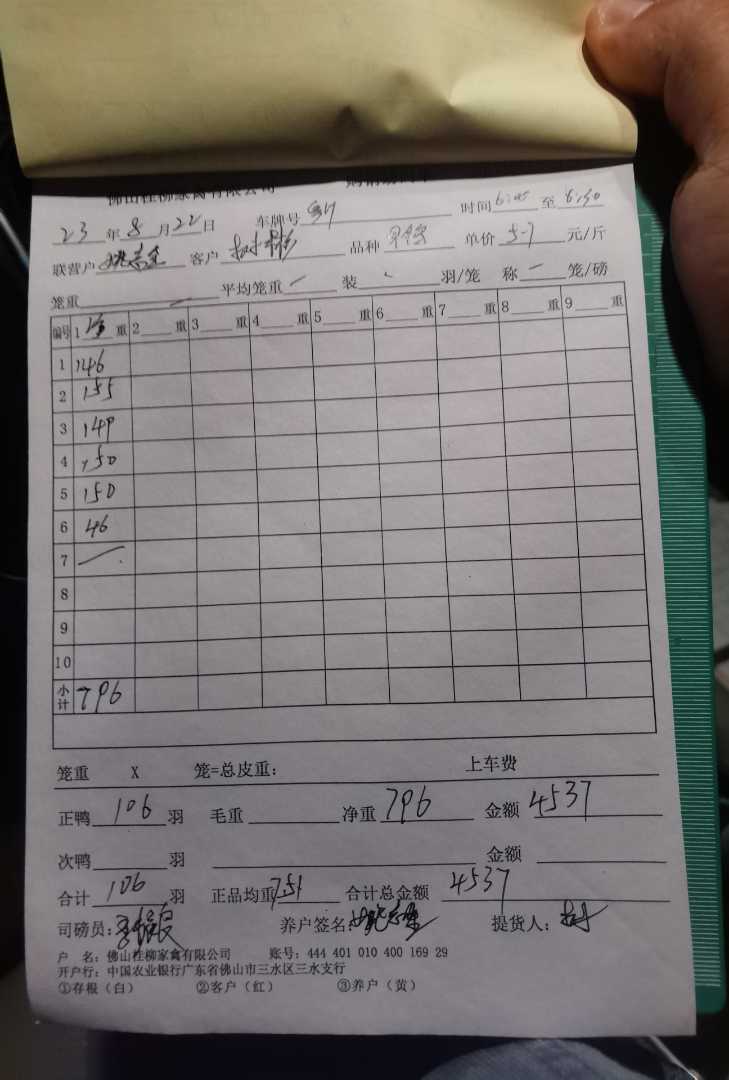 佛山桂柳家禽有限公司
23年8月22日 车牌号 时间6:05至6:30
联营户 客户 品种 单价5-7元/斤
笼重 平均笼重一 装 羽/笼 称一笼/磅
编号 1 重 2 重 3 重 4 重 5 重 6 重 7 重 8 重 9 重
1 146
2 155
3 149
4 150
5 150
6 46
7
8
9
10
小计 796
笼重 X 笼=总皮重: 上车费
正鸭106羽 毛重 净重796 金额4537
次鸭 羽 金额
合计106羽 正品均重751 合计总金额4537
司磅员: 养户签名: 提货人:
户 名: 佛山桂柳家禽有限公司 账号: 444 401 010 400 169 29
开户行: 中国农业银行广东省佛山市三水区三水支行
①存根(白) ②客户(红) ③养户(黄)